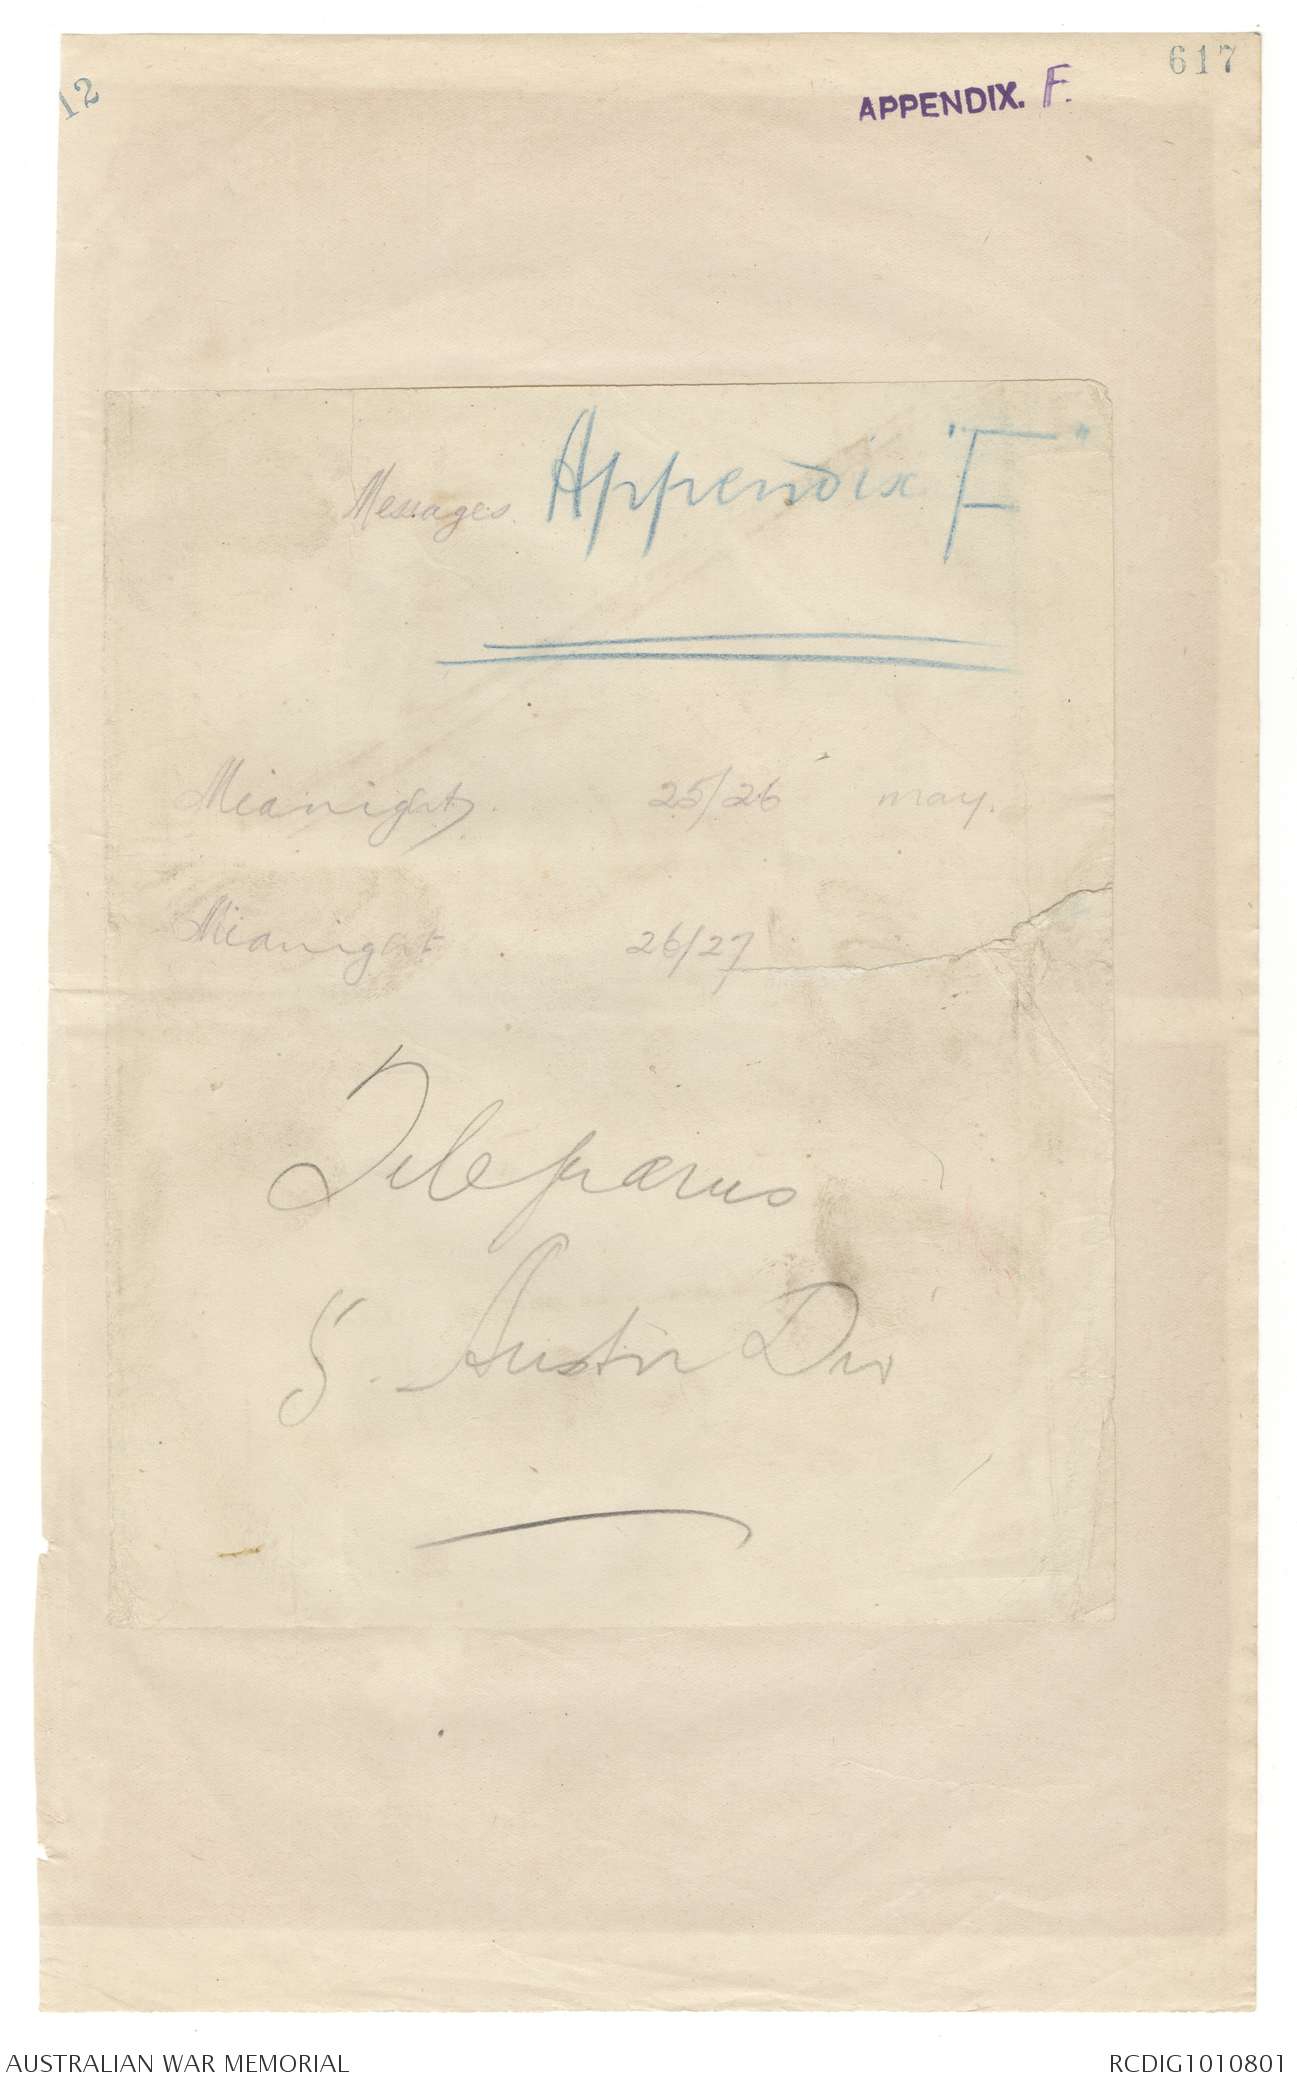 12
617
APPENDIX. F.
Messages Appendix "F"
Midnight. 25/26 May.
Midnight. 26/27
Telegrams
5. Austn Div
AUSTRALIAN WAR MEMORIAL
RCDIG1010801